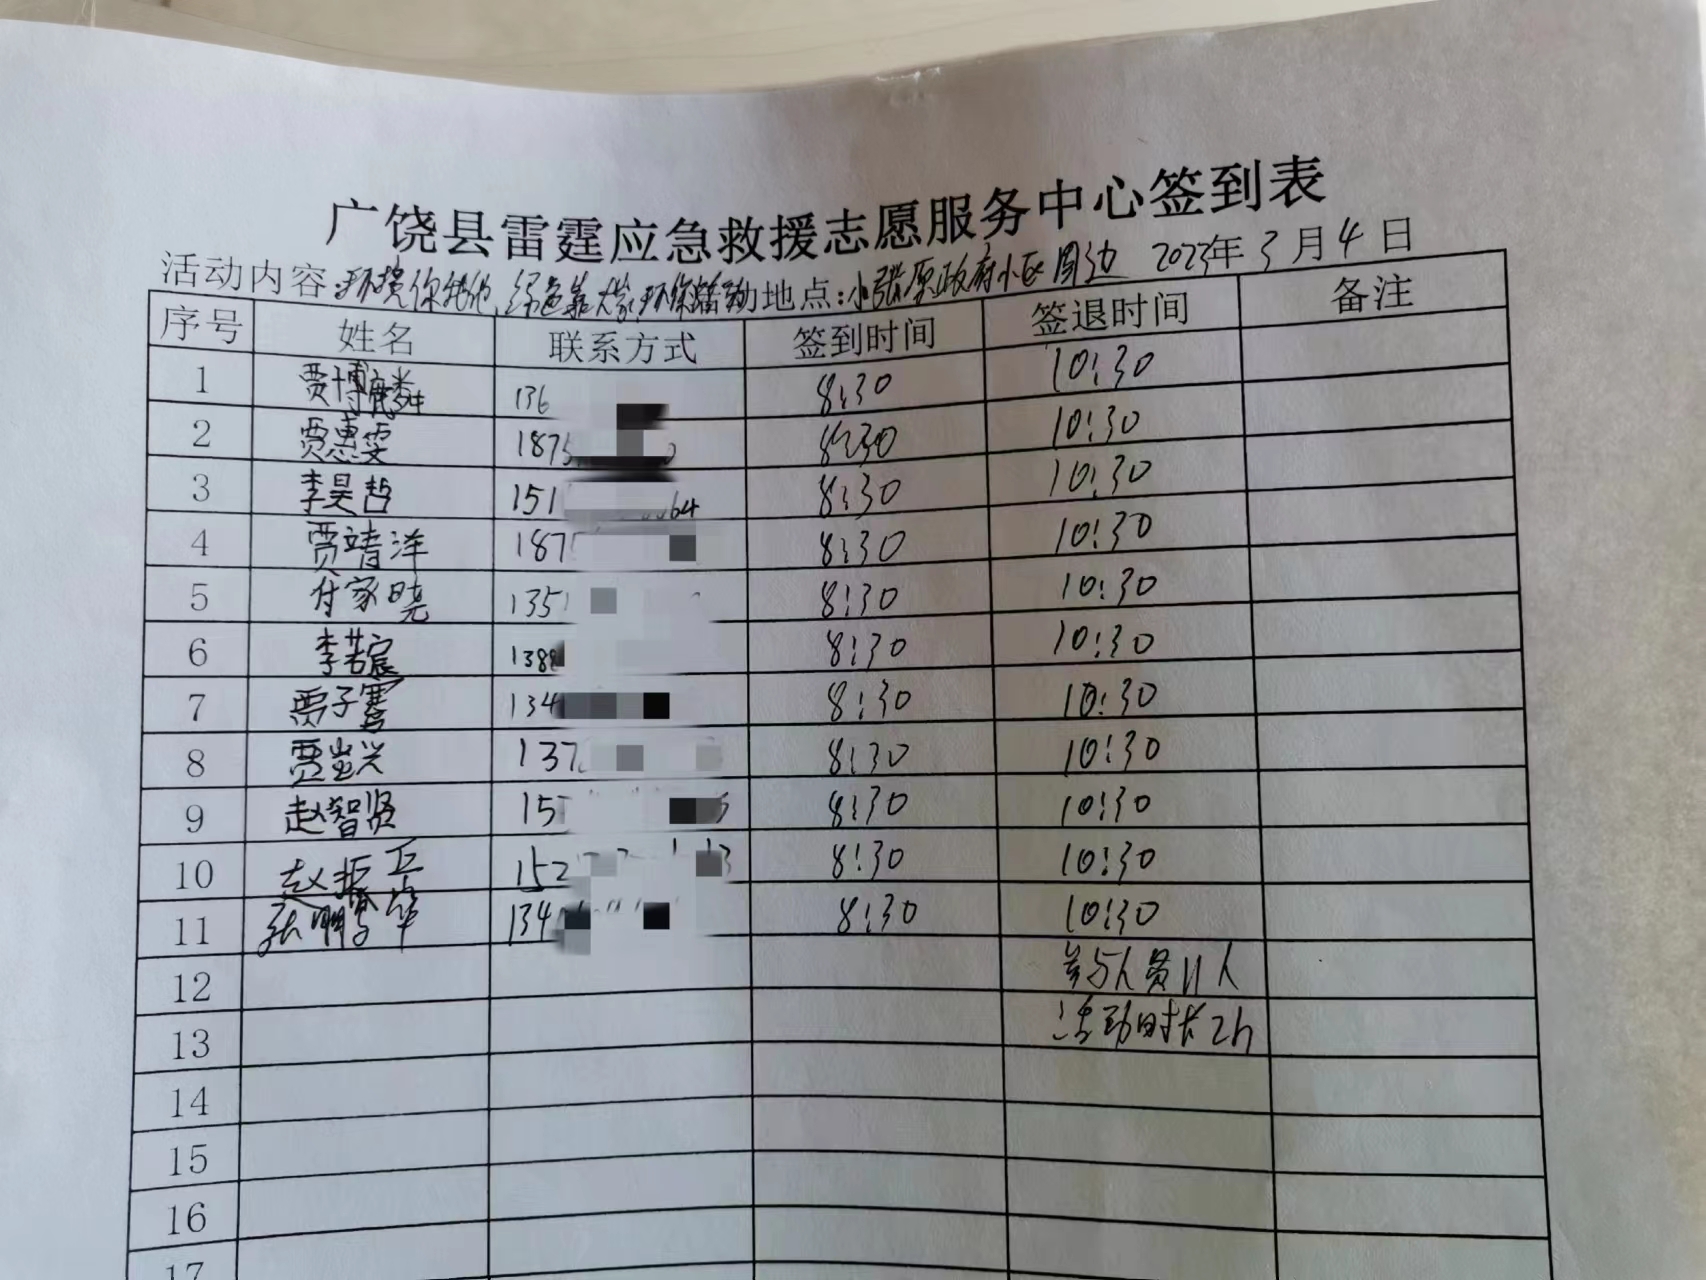 广饶县雷霆应急救援志愿服务中心签到表
活动内容:环境你我他,绿色靠大家,环保活动地点:小张原政府小区周边 2023年3月4日
序号 姓名 联系方式 签到时间 签退时间 备注
1 贾博麟 136 8:30 10:30
2 贾惠雯 1875 8:30 10:30
3 李昊哲 151 64 8:30 10:30
4 贾靖洋 187 8:30 10:30
5 付家晓 135 8:30 10:30
6 李若宸 138 8:30 10:30
7 贾子骞 134 8:30 10:30
8 贾 兴 137 8:30 10:30
9 赵智贤 15 8:30 10:30
10 赵振正 152 8:30 10:30
11 张鹏 134 8:30 10:30
12 参与人员11人
13 活动时长2h
14
15
16
17